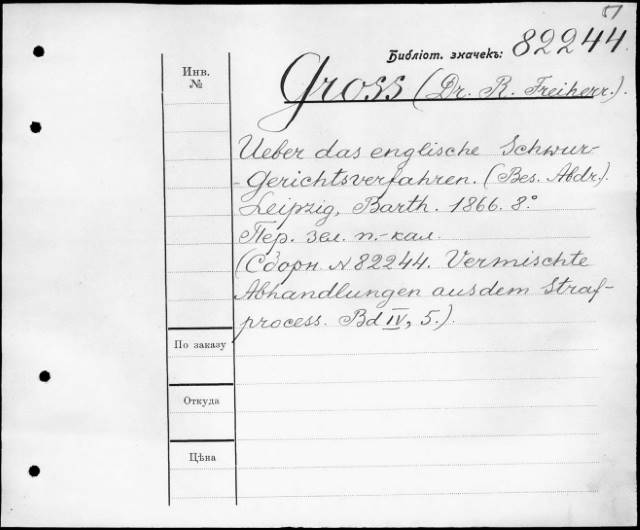 Библіот. значекъ: 82244.
Инв. №
Gross (Dr. R. Freiherr.).
Ueber das englische Schwur-
-Gerichtsverfahren. (Bes. Abdr.).
Leipzig, Barth. 1866. 8.°
Пер. зел. п.-кал.
(Сборн. № 82244. Vermischte
Abhandlungen aus dem Straf-
process. Bd IV, 5.).
По заказу
Откуда
Цѣна